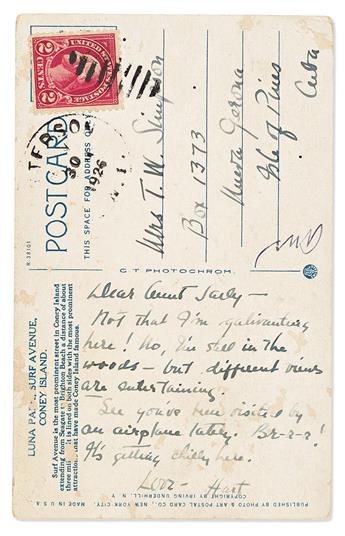 UNITED STATES POSTAGE
2 CENTS 2
TERSON
30
1926
N.Y.
POSTCARD
THIS SPACE FOR ADDRESS ONLY
Mrs T. W. Simpson
Box 1373
Nueva Gerona
Isle of Pines
Cuba
R-38101
C.T. PHOTOCHROM
LUNA PARK, SURF AVENUE,
CONEY ISLAND.
Surf Avenue is the most prominent street in Coney Island
extending from Seagate to Brighton Beach a distance of about
three miles. It is lined on both sides with the most prominent
attractions that have made Coney Island famous.
Dear Aunt Saely —
Not that I'm galivanting
here! No, I'm still in the
woods — but different views
are entertaining.
See you've been visited by
an airplane lately. Br-r-r!
It's getting chilly here.
Love — Hart
PUBLISHED BY PHOTO & ART POSTAL CARD CO., NEW YORK CITY.
COPYRIGHT BY IRVING UNDERHILL, N.Y.
MADE IN U.S.A.